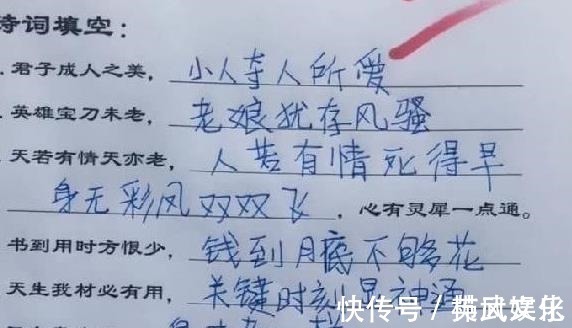 诗词填空:
君子成人之美, 小人夺人所爱
英雄宝刀未老, 老娘犹存风骚
天若有情天亦老, 人若有情死得早
身无彩凤双双飞, 心有灵犀一点通。
书到用时方恨少, 钱到月底不够花
天生我材必有用, 关键时刻
快传号/